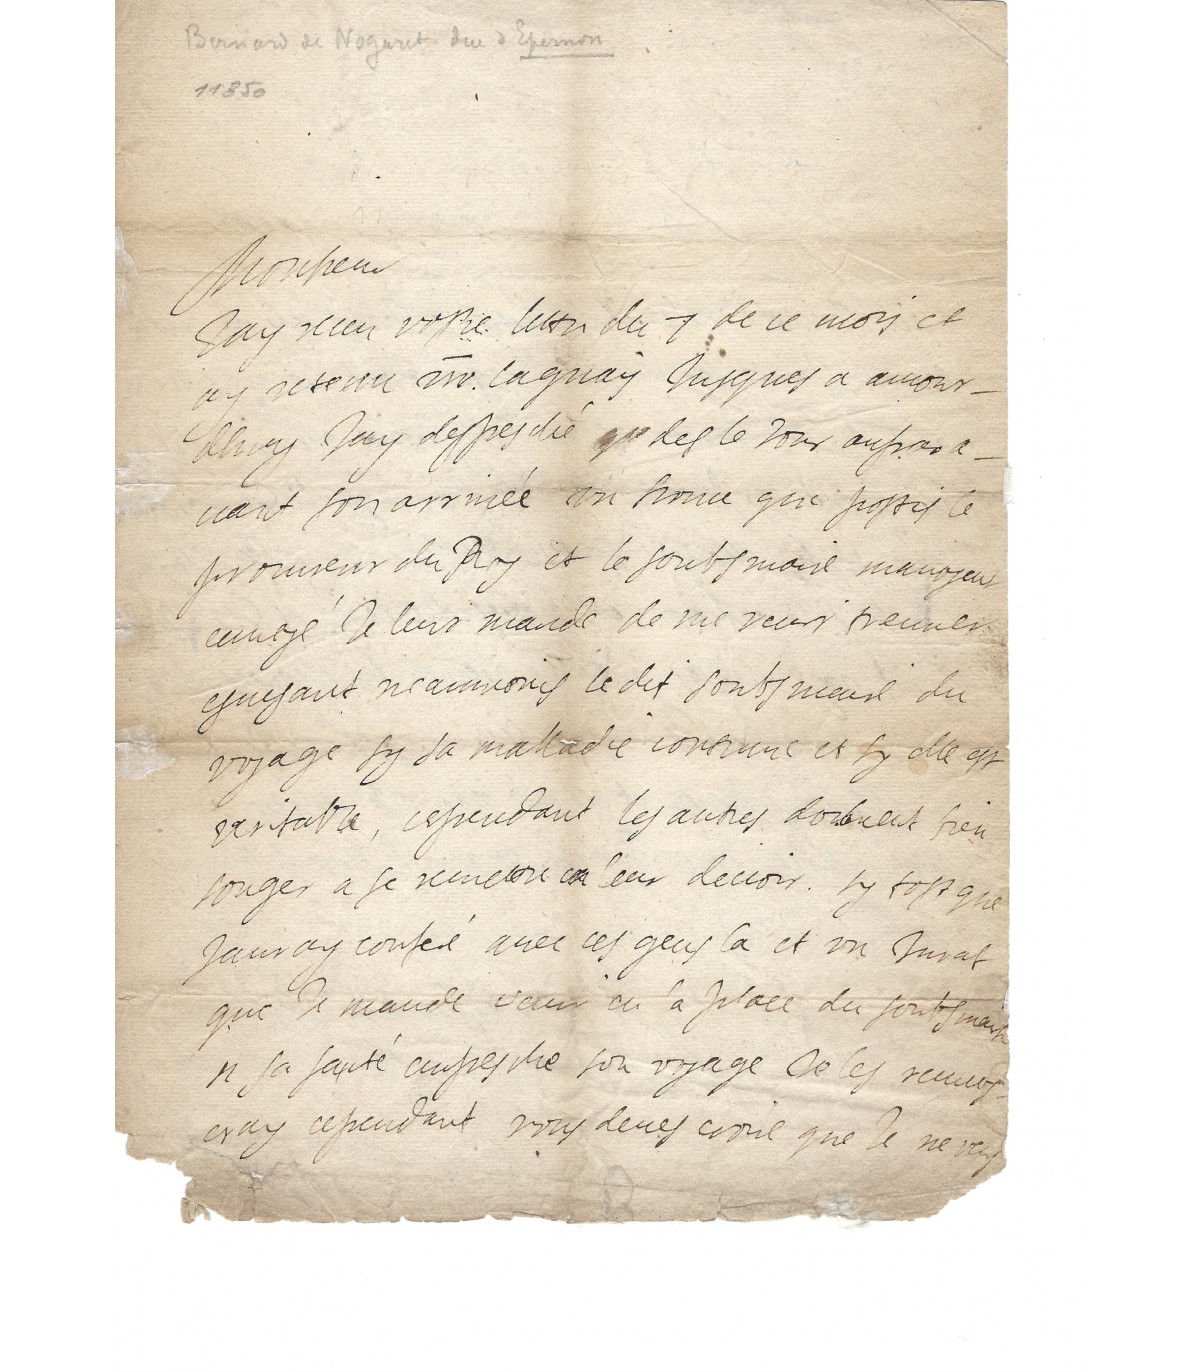 Bernard de Nogaret duc d'Epernon
11850
Monsieur
Jay receu vostre lettre du 7 de ce mois et
ay retenu Mr. Jusques a aujour
dhuy Jay despesché des le Jour aupara
uant son arriueé un homme que
procureur du Roy et le soubsmaire mauoyent
enuoyé Je leur mande de me venir treuuer
neanmoins ledit soubsmaire du
voyage sy sa malladie continue et sy elle est
veritable, cependant les autres doibuent bien
songer a se remettre en leur deuoir. sy tost que
Jauray conferé auec ces gens la et un Jurat
que Je mande venir en la place du soubsmaire
si sa santé empesche son voyage Je les renuoy
eray cependant vous deues croire que Je ne veus